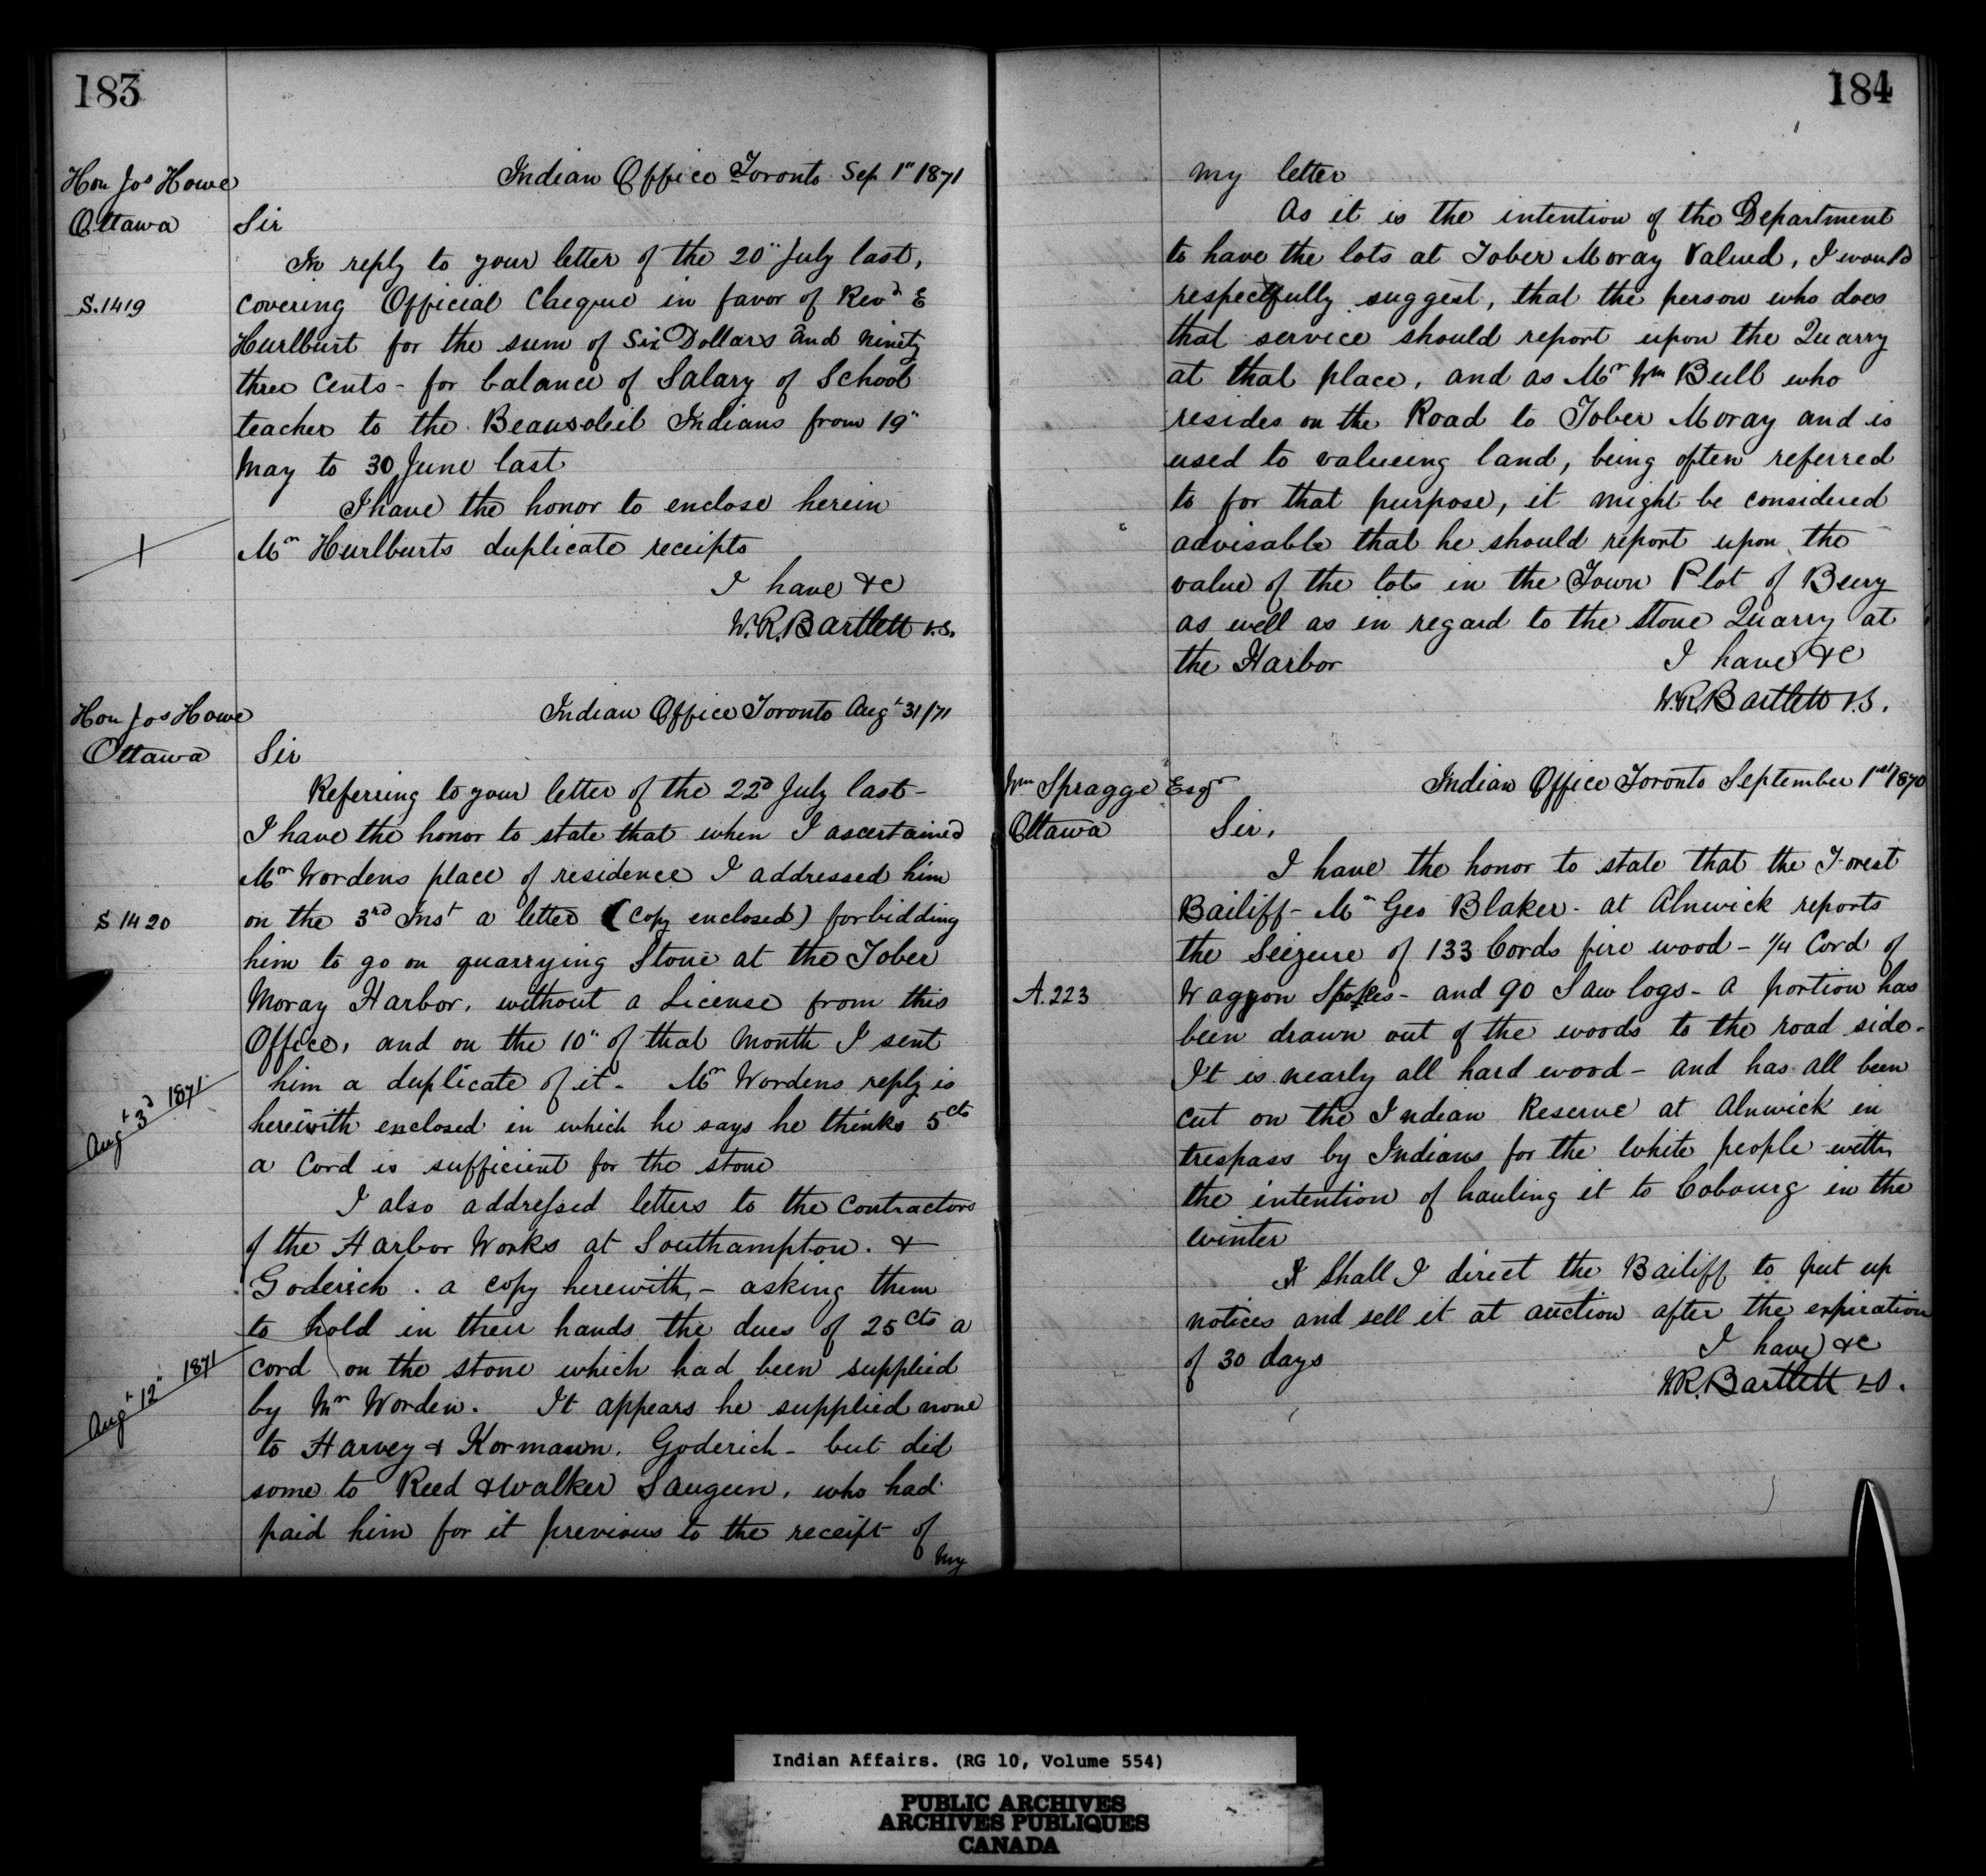 183
Hon Jos Howe
Ottawa
Indian Office Toronto Sep 1" 1871
Sir
In reply to your letter of the 20" July last,
S.1419
covering Official Cheque in favor of Revd E
Hurlburt for the sum of Six Dollars and ninety
three Cents - for balance of Salary of School
teacher to the Beausoleil Indians from 19"
May to 30 June last
I have the honor to enclose herein
Mr Hurlburts duplicate receipts
I have &c
W.R. Bartlett V.S.
Hon Jos Howe
Ottawa
Indian Office Toronto Augt 31/71
Sir
Referring to your letter of the 22d July last -
I have the honor to state that when I ascertained
Mr Wordens place of residence I addressed him
S 1420
on the 3rd Inst a letter (Copy enclosed) forbidding
him to go on quarrying Stone at the Tober
Moray Harbor, without a License from this
Office, and on the 10" of that Month I sent
him a duplicate of it - Mr Wordens reply is
Augt 3d 1871
herewith enclosed in which he says he thinks 5cts
a Cord is sufficient for the stone
I also addressed letters to the Contractors
of the Harbor Works at Southampton. &
Goderich. a copy herewith, - asking them
to hold in their hands the dues of 25cts a
Augt 12" 1871
cord on the stone which had been supplied
by Mr Worden. It appears he supplied none
to Harvey & Kormann. Goderich - but did
some to Reed & Walker Saugeen, who had
paid him for it previous to the receipt of
my
184
my letter
As it is the intention of the Department
to have the lots at Tober Moray Valued, I would
respectfully suggest, that the person who does
that service should report upon the Quarry
at that place, and as Mr Wm Bull who
resides on the Road to Tober Moray and is
used to valueing land, being often referred
to for that purpose, it might be considered
advisable that he should report upon the
value of the lots in the Town Plot of Bury
as well as in regard to the stone Quarry at
the Harbor
I have &c
W.R. Bartlett V.S.
Wm Spragge Esqr
Ottawa
Indian Office Toronto September 1st 1870
Sir,
I have the honor to state that the Forest
Bailiff - Mr Geo Blaker - at Alnwick reports
the Seizure of 133 Cords fire wood - 1/4 Cord of
A.223
Waggon Spokes - and 90 Saw logs - a portion has
been drawn out of the woods to the road side -
It is nearly all hard wood - and has all been
cut on the Indian Reserve at Alnwick in
trespass by Indians for the White people with
the intention of hauling it to Cobourg in the
winter
Shall I direct the Bailiff to put up
notices and sell it at auction after the expiration
of 30 days
I have &c
W.R. Bartlett V.S.
Indian Affairs. (RG 10, Volume 554)
PUBLIC ARCHIVES
ARCHIVES PUBLIQUES
CANADA